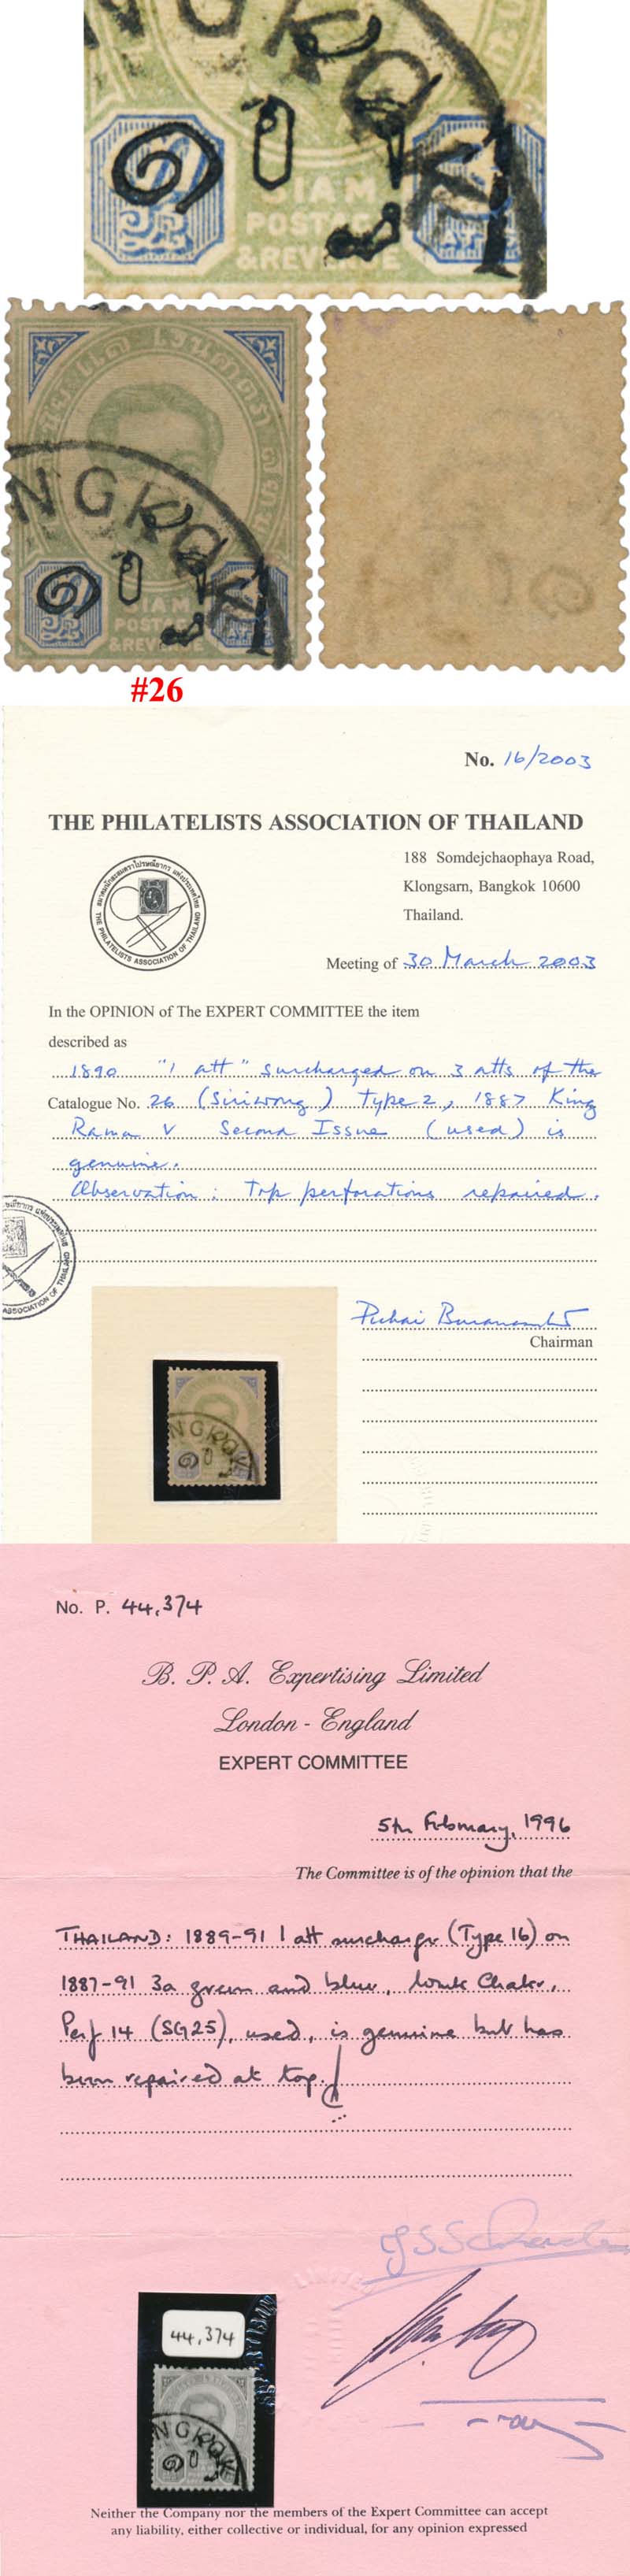 NGKOK
๑
SIAM
POSTAGE
&REVENUE
NGKOK
๑
SIAM
POSTAGE
&REVENUE
#26
No. 16/2003
THE PHILATELISTS ASSOCIATION OF THAILAND
188 Somdejchaophaya Road,
Klongsarn, Bangkok 10600
Thailand.
THE PHILATELISTS ASSOCIATION OF THAILAND
Meeting of 30 March 2003
In the OPINION of The EXPERT COMMITTEE the item
described as
1890 "1 att" surcharged on 3 atts of the
Catalogue No. 26 (Siriwong) type 2, 1887 King
Rama V Second Issue (used) is
genuine.
Observation: Top perforations repaired.
ASSOCIATION OF THAILAND
Chairman
NGKOK
No. P. 44,374
B. P. A. Expertising Limited
London - England
EXPERT COMMITTEE
5th February, 1996
The Committee is of the opinion that the
THAILAND: 1889-91 1 att surcharge (Type 16) on
1887-91 3a green and blue, wmk Chakr,
Perf 14 (SG25), used, is genuine but has
been repaired at top.
44,374
NGKOK
๑
Neither the Company nor the members of the Expert Committee can accept
any liability, either collective or individual, for any opinion expressed